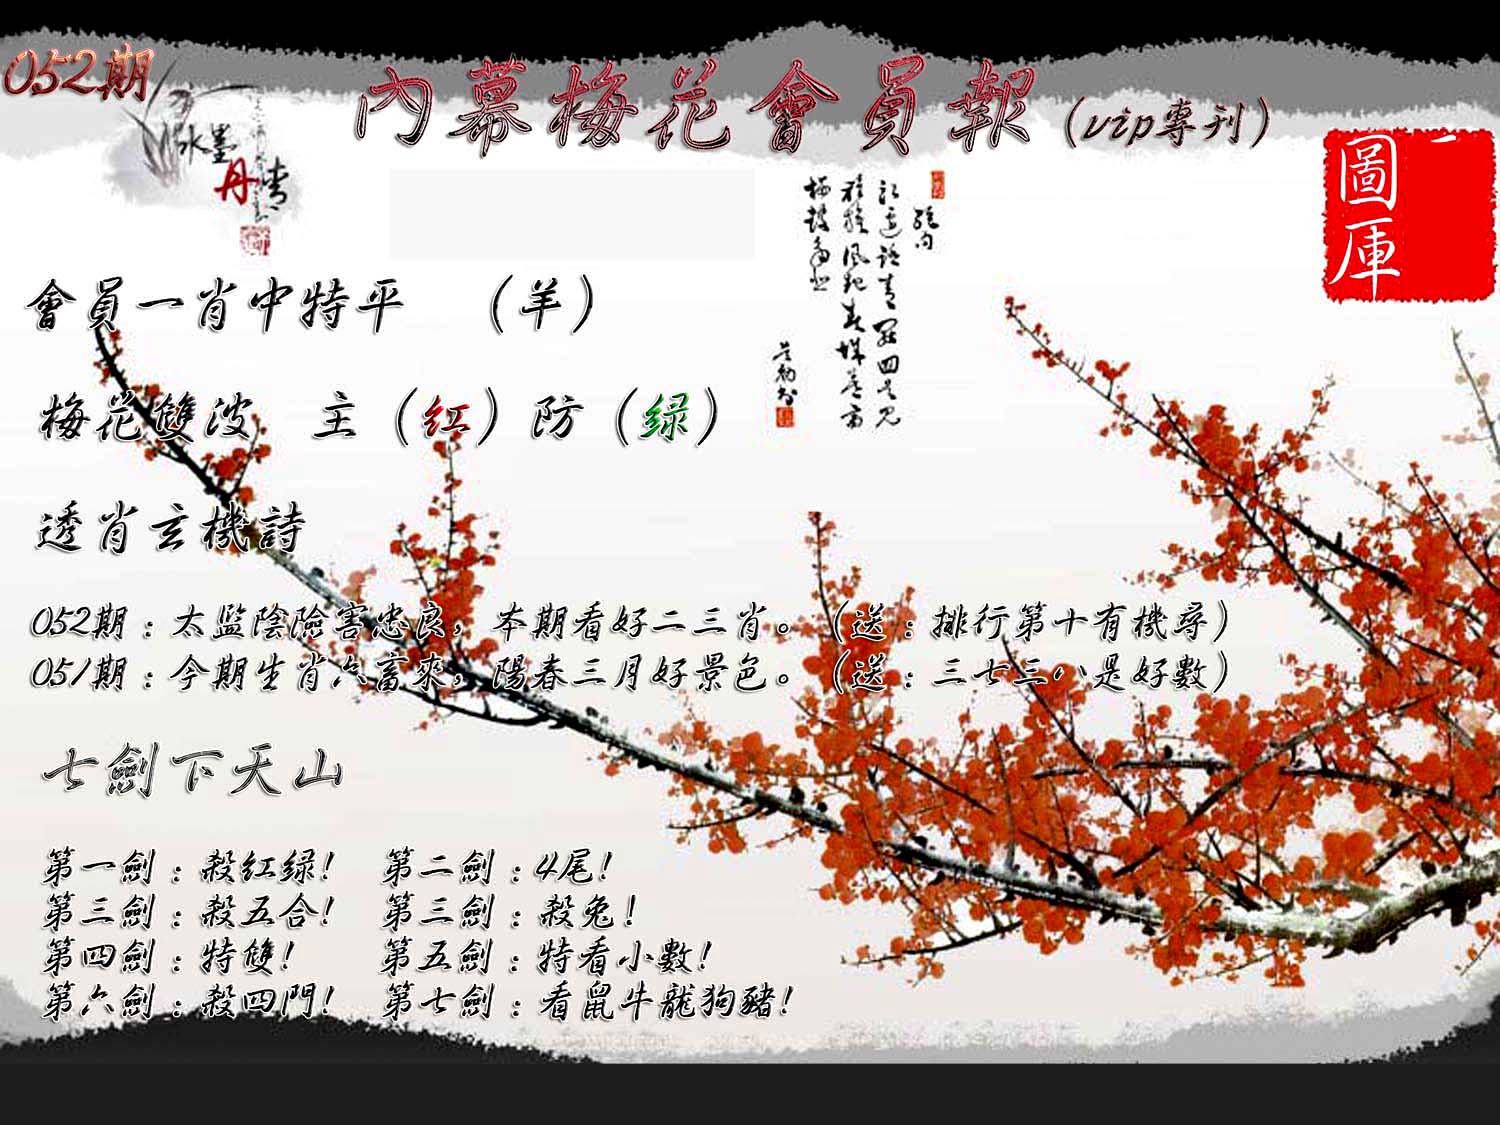 052期
內幕梅花會員報（vip專刊）
水墨
丹青
圖庫
會員一肖中特平　（羊）
梅花雙波　主（红）防（绿）
透肖玄機詩
052期：太监陰險害忠良，本期看好二三肖。（送：排行第十有機尋）
051期：今期生肖六畜來，陽春三月好景色。（送：三七三八是好數）
七劍下天山
第一劍：殺紅绿！　第二劍：4尾！
第三劍：殺五合！　第三劍：殺兔！
第四劍：特雙！　第五劍：特看小數！
第六劍：殺四門！　第七劍：看鼠牛龍狗豬！